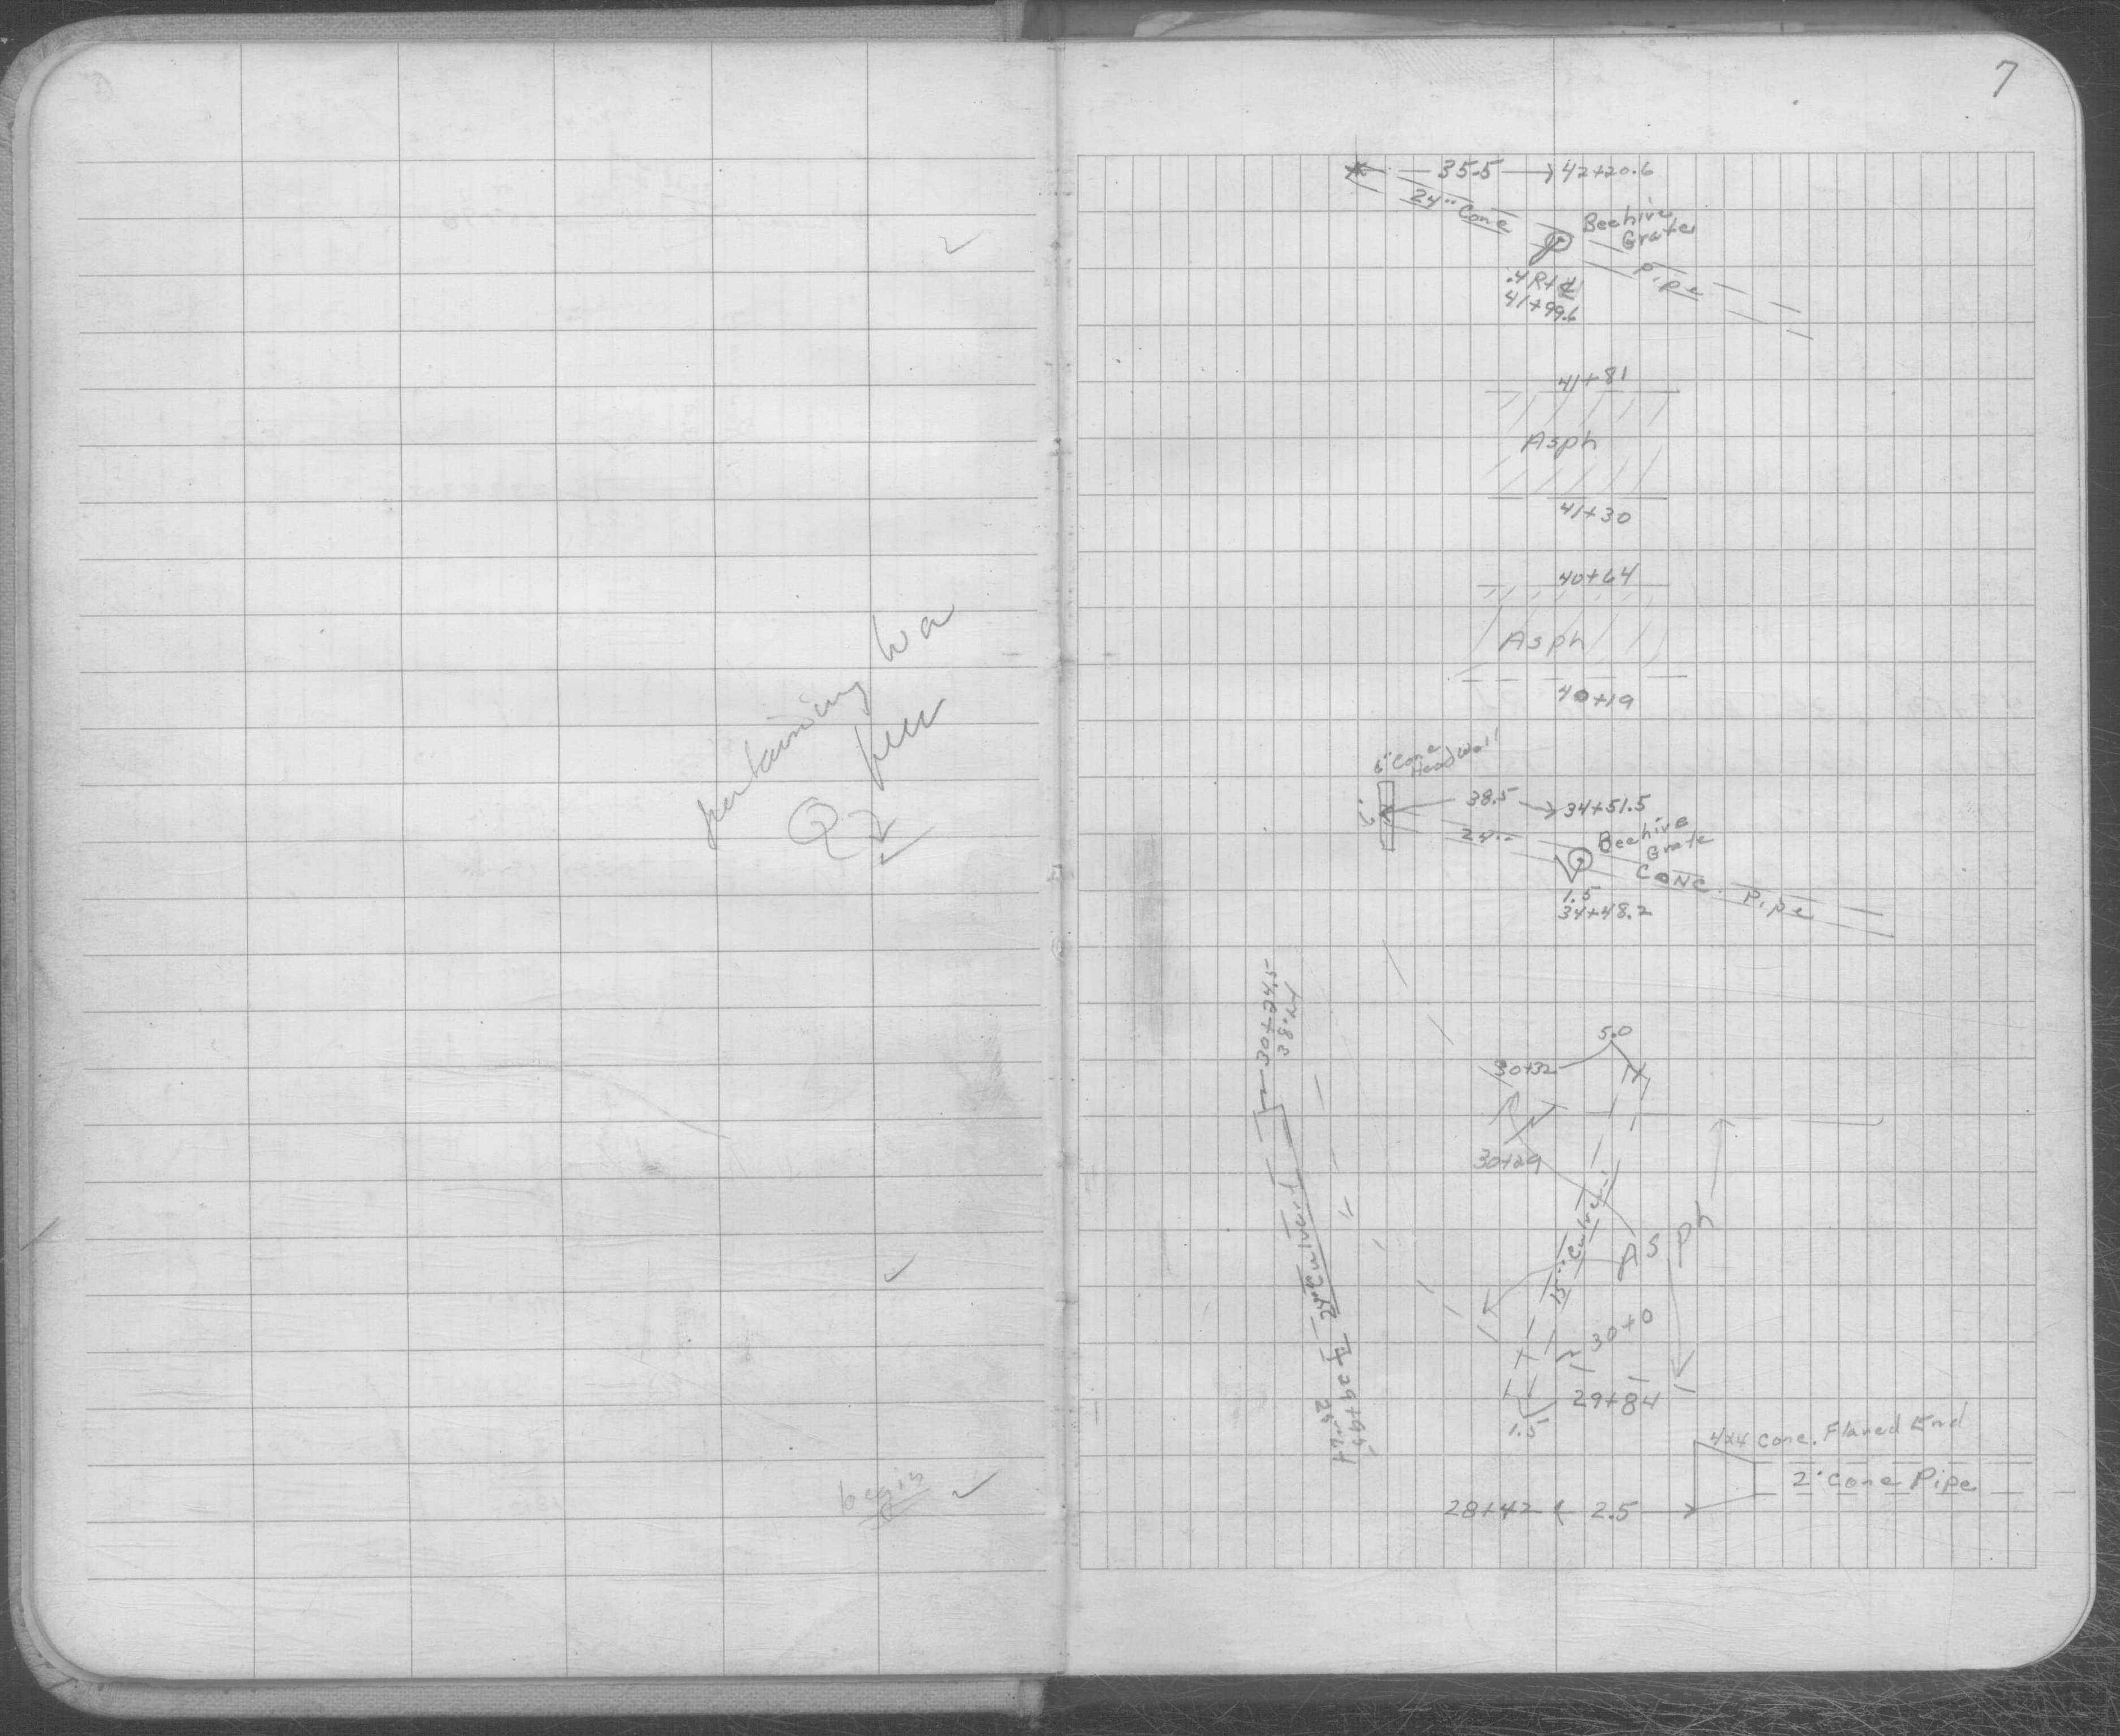 7
35.5 42+20.6
24" Conc
Beehive
Grate
Pipe
.4 Rt ℄
41+99.6
41+81
Asph
41+30
40+64
Asph
40+19
pertaining
6" Conc
Headwall
38.5 34+51.5
24"
Beehive
Grate
Conc. Pipe
1.5
34+48.2
30+24.5
5.0
30+32
30+29
15" Culvert
24" Culvert
Asph
30+0
29+84
1.5
4x4 Conc. Flared End
2' Conc Pipe
28+42 2.5
begin